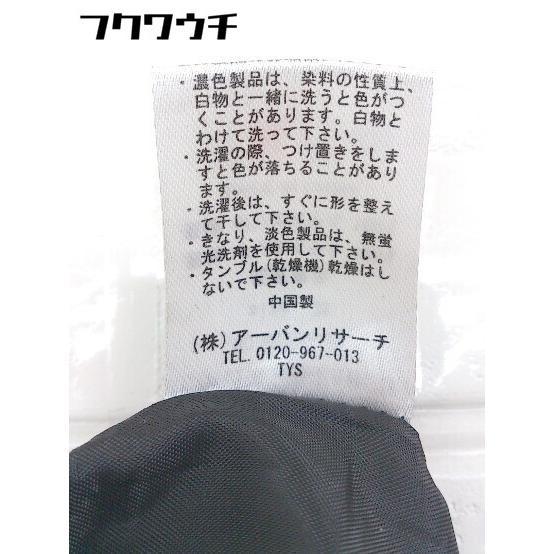 フクワウチ
・濃色製品は、染料の性質上、
白物と一緒に洗うと色がつ
くことがあります。白物と
わけて洗って下さい。
・洗濯の際、つけ置きをしま
すと色が落ちることがあり
ます。
・洗濯後は、すぐに形を整え
て干して下さい。
・きなり、淡色製品は、無蛍
光洗剤を使用して下さい。
・タンブル(乾燥機)乾燥はし
ないで下さい。
中国製
(株)アーバンリサーチ
TEL. 0120-967-013
TYS